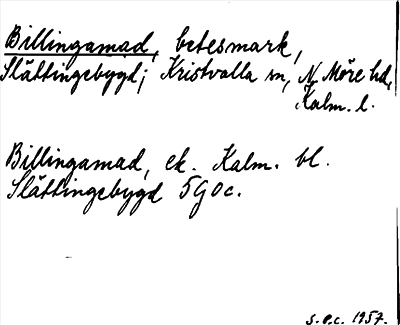 Billingamad, betesmark,
Slättingebygd; Kristvalla sn, N. Möre hd,
Kalm. l.
Billingamad, ek. Kalm. bl.
Slättingebygd 5G0c.
S.O.C. 1957.